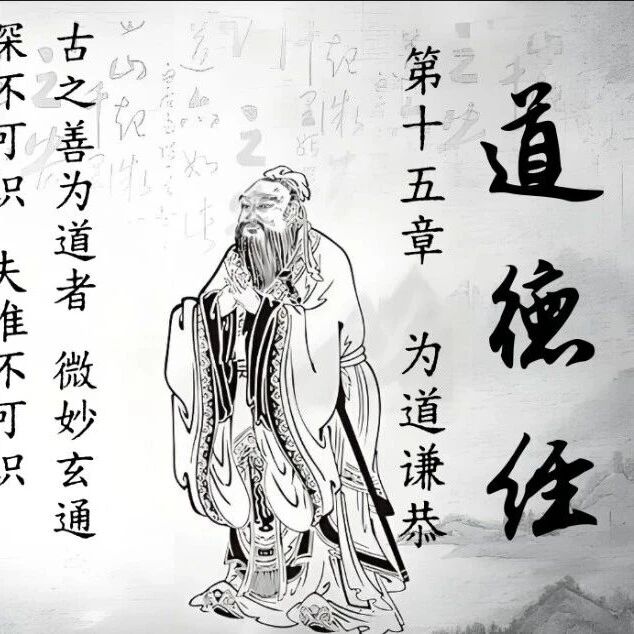 道德经
第十五章 为道谦恭
古之善为道者 微妙玄通
深不可识 夫唯不可识